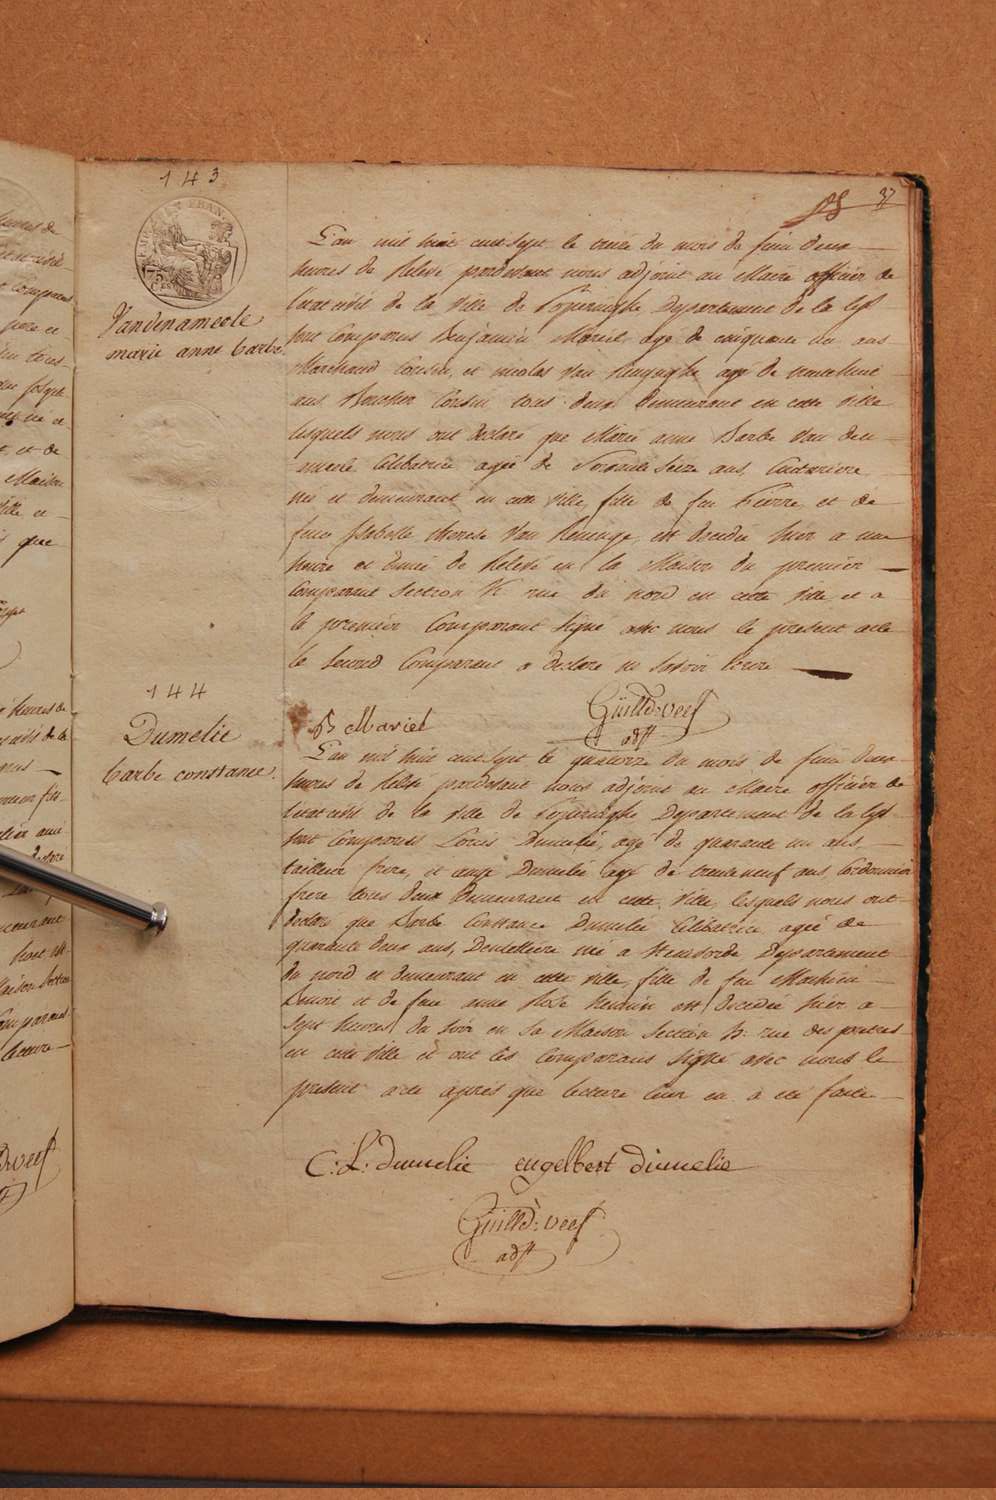 143
37
EMPIRE FRANÇAIS
75
Vandenameele
marie anne barbe
L'an mil huit cent sept le treize du mois de juin deux
heures de relevé pardevant nous adjoint au Maire officier de
l'état civil de la ville de Poperinghe Departement de la Lys
sont comparus Benjamin Mariel agé de cinquante un ans
Marchand Cousin, et nicolas Van Renynghe agé de trente huit
ans Boucher Cousin tous deux demeurant en cette ville
lesquels nous ont declaré que Marie anne Barbe Van den
ameele Celibatrice agée de Soixante seize ans Couturiere
née et demeurant en cette ville, fille de feu Pierre, et de
feue Isabelle therese Van Renynge, est decedée hier a une
heure et demie de relevé en la Maison du premier
Comparant Section K rue du nord en cette ville et a
le premier Comparant signé avec nous le present acte
le second Comparant a declaré ne savoir ecrire
B Mariel
Guilld: veef
adjt
144
Dumelie
barbe constance.
L'an mil huit cent sept le quatorze du mois de juin deux
heures de relevé pardevant nous adjoint au Maire officier de
l'état civil de la ville de Poperinghe Departement de la Lys
sont comparus Louis Dumelié, agé de quarante un ans,
tailleur frere, et Dumelie agé de trente neuf ans, Cordonnier
frere tous deux demeurant en cette ville, lesquels nous ont
declaré que Barbe Constance Dumelie Celibatrice agée de
quarante deux ans, Dentelliere née a Steenvorde Departement
du nord et demeurant en cette ville, fille de feu
Benoit et de feue anne Rose est decedée hier a
sept heures du soir en sa Maison Section B: rue des pretres
en cette ville et ont les Comparans signé avec nous le
present acte après que lecture leur en a été faite
C: L: dumelie engelbert dumelie
Guilld: veef
adjt